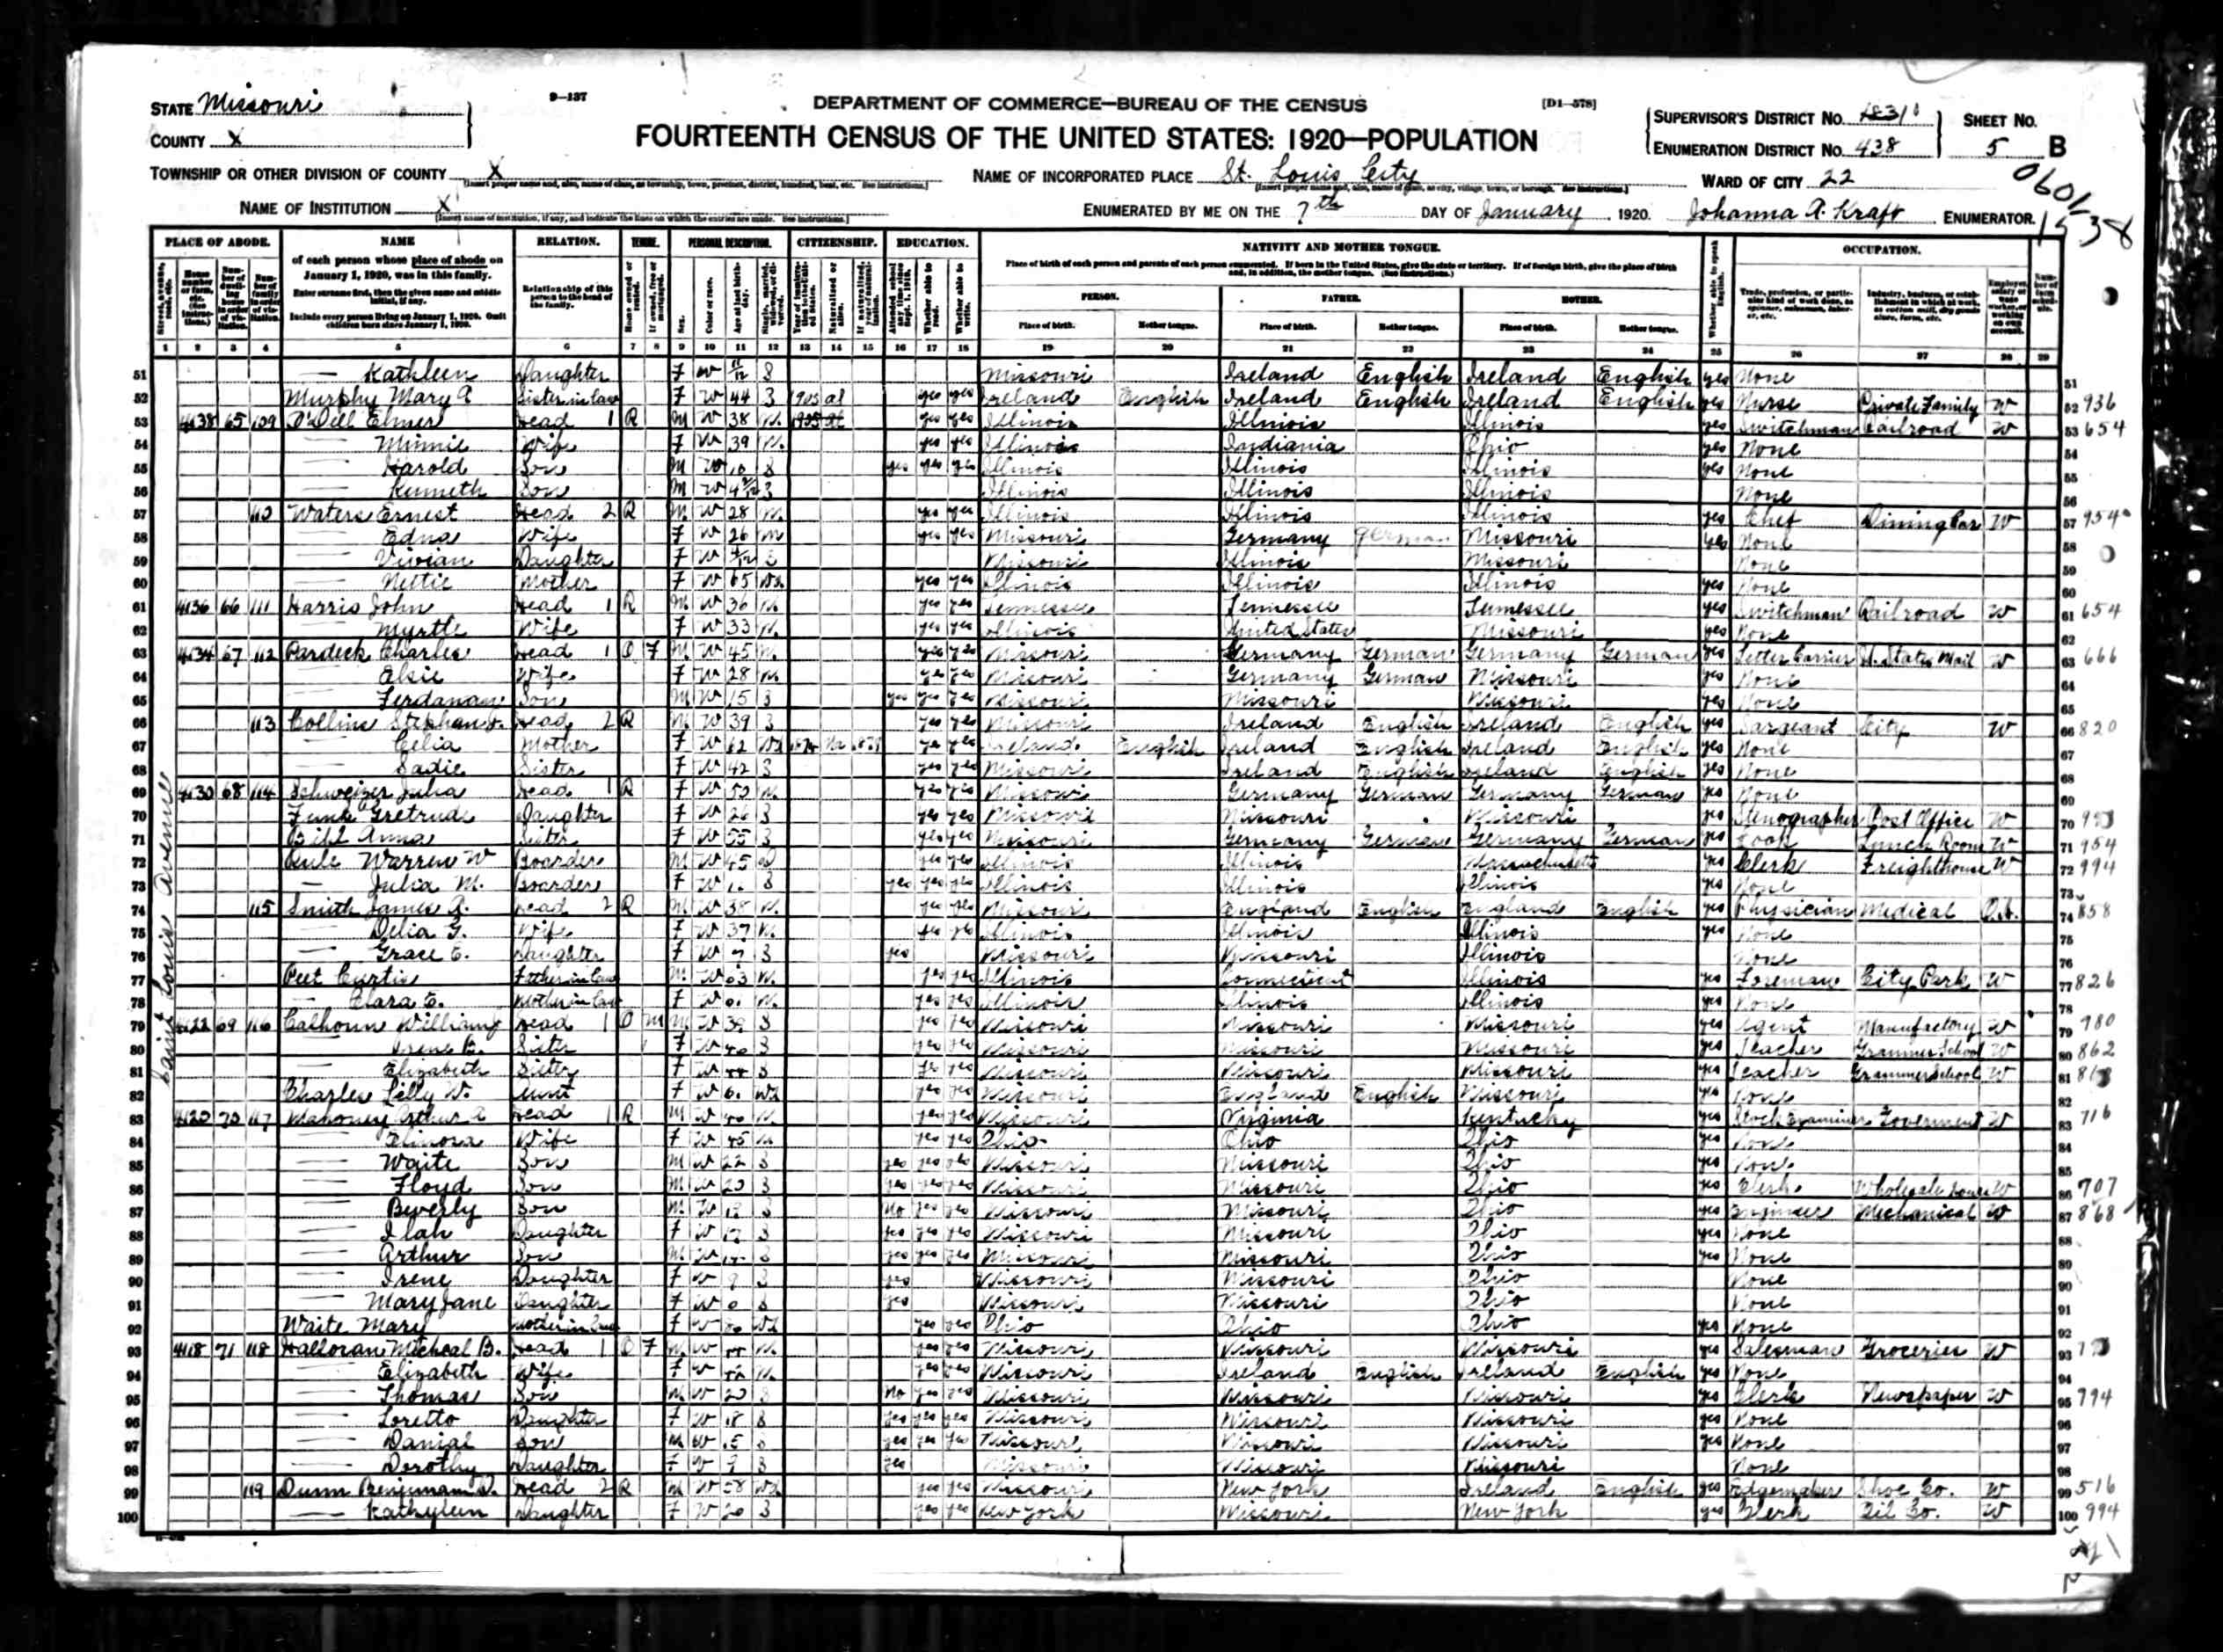 9—137
DEPARTMENT OF COMMERCE—BUREAU OF THE CENSUS
[D1—578]
STATE Missouri
COUNTY X
FOURTEENTH CENSUS OF THE UNITED STATES: 1920—POPULATION
SUPERVISOR'S DISTRICT No.
SHEET No. 5 B
ENUMERATION DISTRICT No. 438
TOWNSHIP OR OTHER DIVISION OF COUNTY X
NAME OF INCORPORATED PLACE St. Louis City
WARD OF CITY 22
NAME OF INSTITUTION X
ENUMERATED BY ME ON THE 7th DAY OF January, 1920. Johanna A. Kraft ENUMERATOR.
PLACE OF ABODE. NAME RELATION. TENURE. PERSONAL DESCRIPTION. CITIZENSHIP. EDUCATION. NATIVITY AND MOTHER TONGUE. OCCUPATION.
of each person whose place of abode on January 1, 1920, was in this family.
Enter surname first, then the given name and middle initial, if any.
Include every person living on January 1, 1920. Omit children born since January 1, 1920.
Relationship of this person to the head of the family.
PERSON. FATHER. MOTHER.
Place of birth. Mother tongue. Place of birth. Mother tongue. Place of birth. Mother tongue.
1 2 3 4 5 6 7 8 9 10 11 12 13 14 15 16 17 18 19 20 21 22 23 24 25 26 27 28 29
Saint Louis Avenue
51 — Kathleen Daughter F W 11/12 S Missouri Ireland English Ireland English yes None 51
52 Murphy Mary A Sister in law F W 44 S 1905 al yes yes Ireland English Ireland English Ireland English yes Nurse Private Family W 52 936
53 4138 65 109 O'Dell Elmer Head 1 R M W 38 M yes yes Illinois Illinois Illinois yes Switchman Railroad W 53 654
54 — Minnie Wife F W 39 M yes yes Illinois Indiania Ohio yes None 54
55 — Harold Son M W S yes yes yes Illinois Illinois Illinois yes None 55
56 — Kenneth Son M W S Illinois Illinois Illinois None 56
57 110 Waters Ernest Head 2 R M W 28 M yes yes Illinois Illinois Illinois yes Chef Dining Car W 57 954
58 — Edna Wife F W 26 M yes yes Missouri Germany German Missouri yes None 58
59 — Vivian Daughter F W S Missouri Illinois Missouri None 59
60 — Nettie Mother F W 65 Wd yes yes Illinois Illinois Illinois yes None 60
61 4136 66 111 Harris John Head 1 R M W 36 M yes yes Tennessee Tennessee Tennessee yes Switchman Railroad W 61 654
62 — Myrtle Wife F W 33 M yes yes Illinois United States Missouri yes None 62
63 4134 67 112 Pardeck Charles Head 1 O F M W 45 M yes yes Missouri Germany German Germany German yes Letter Carrier U. States Mail W 63 666
64 — Elsie Wife F W 28 M yes yes Missouri Germany German Missouri yes None 64
65 — Son M W 15 S yes yes yes Missouri Missouri Missouri yes None 65
66 113 Collins Stephen J. Head 2 R M W 39 S yes yes Missouri Ireland English Ireland English yes Sargeant City W 66 820
67 — Celia Mother F W Wd Na yes yes Ireland English Ireland English Ireland English yes None 67
68 — Sadie Sister F W 42 S yes yes Missouri Ireland English Ireland English yes None 68
69 4130 68 114 Schweizer Julia Head 1 R F W yes yes Missouri Germany German Germany German yes None 69
70 Funk Gretrude Daughter F W 26 S yes yes Missouri Missouri Missouri yes Stenographer Post Office W 70
71 Anna Sister F W 55 S yes yes Missouri Germany German Germany German yes Cook Lunch Room W 71 954
72 Rule Warren W Boarder M W 45 yes yes Illinois Illinois Massachusetts yes Clerk Freighthouse W 72 994
73 — Julia M. Boarder F W S yes yes yes Illinois Illinois Illinois yes None 73
74 115 Smith James R. Head 2 R M W 38 M yes yes Missouri England English England English yes Physician Medical O.A. 74 858
75 — Delia G. Wife F W 37 M yes yes Illinois Illinois Illinois yes None 75
76 — Grace E. Daughter F W 7 S yes Missouri Missouri Illinois None 76
77 Peet Curtis Father in law M W 63 M yes yes Illinois Connecticut Illinois yes Foreman City Park W 77 826
78 — Clara E. Mother in law F W M yes yes Illinois Illinois Illinois yes None 78
79 4122 69 116 Calhoun William J Head 1 O M M W S yes yes Missouri Missouri Missouri yes Agent Manufactory W 79 980
80 — Irene B. Sister F W 40 S yes yes Missouri Missouri Missouri yes Teacher Grammer School W 80 862
81 — Elizabeth Sister F W 44 S yes yes Missouri Missouri Missouri yes Teacher Grammer School W 81
82 Charles Lilly V. Aunt F W Wd yes yes Missouri England English Missouri yes None 82
83 4120 70 117 Mahoney Arthur A Head 1 R M W M yes yes Missouri Virginia Kentucky yes Stock Examiner Goverment W 83 716
84 — Elinora Wife F W 45 M yes yes Ohio Ohio Ohio yes None 84
85 — Waite Son M W 22 S yes yes yes Missouri Missouri Ohio yes None 85
86 — Floyd Son M W 20 S yes yes yes Missouri Missouri Ohio yes Clerk Wholesale W 86 707
87 — Beverly Son M W S No yes yes Missouri Missouri Ohio yes Engineer Mechanical W 87 868
88 — Ilah Daughter F W S yes yes yes Missouri Missouri Ohio yes None 88
89 — Arthur Son M W S yes yes yes Missouri Missouri Ohio yes None 89
90 — Irene Daughter F W 9 S yes Missouri Missouri Ohio None 90
91 — Mary Jane Daughter F W S yes Missouri Missouri Ohio None 91
92 Waite Mary Mother in law F W Wd yes yes Ohio Ohio Ohio yes None 92
93 4118 71 118 Halloran Micheal B. Head 1 O F M W 44 M yes yes Missouri Missouri Missouri yes Salesman Groceries W 93
94 — Elizabeth Wife F W M yes yes Missouri Ireland English Ireland English yes None 94
95 — Thomas Son M W 20 S No yes yes Missouri Missouri Missouri yes Clerk Newspaper W 95 794
96 — Loretto Daughter F W 18 S yes yes yes Missouri Missouri Missouri yes None 96
97 — Danial Son M W 15 S yes yes yes Missouri Missouri Missouri yes None 97
98 — Dorothy Daughter F W 9 S yes Missouri Missouri Missouri None 98
99 119 Dunn Benjaman D. Head 2 R M W 58 Wd yes yes Missouri New York Ireland English yes Edgemaker Shoe Co. W 99 516
100 — Kathyleen Daughter F W 20 S yes yes New York Missouri New York yes Clerk Oil Co. W 100 994